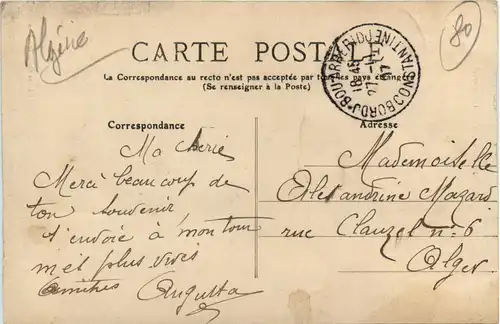 Algérie
80
CARTE POSTALE
La Correspondance au recto n'est pas acceptée par tous les pays étrangers
(Se renseigner à la Poste)
BORDJ-BOU-ARRERIDJ
CONSTANTINE
18 45
27
17
Correspondance
Ma cherie
Merci beaucoup de
ton souvenir,
t'envoie à mon tour
mel plus vives
amitiés Augusta
Adresse
Mademoiselle
Alexandrine Mazard
rue Clauzel n° 6
Alger